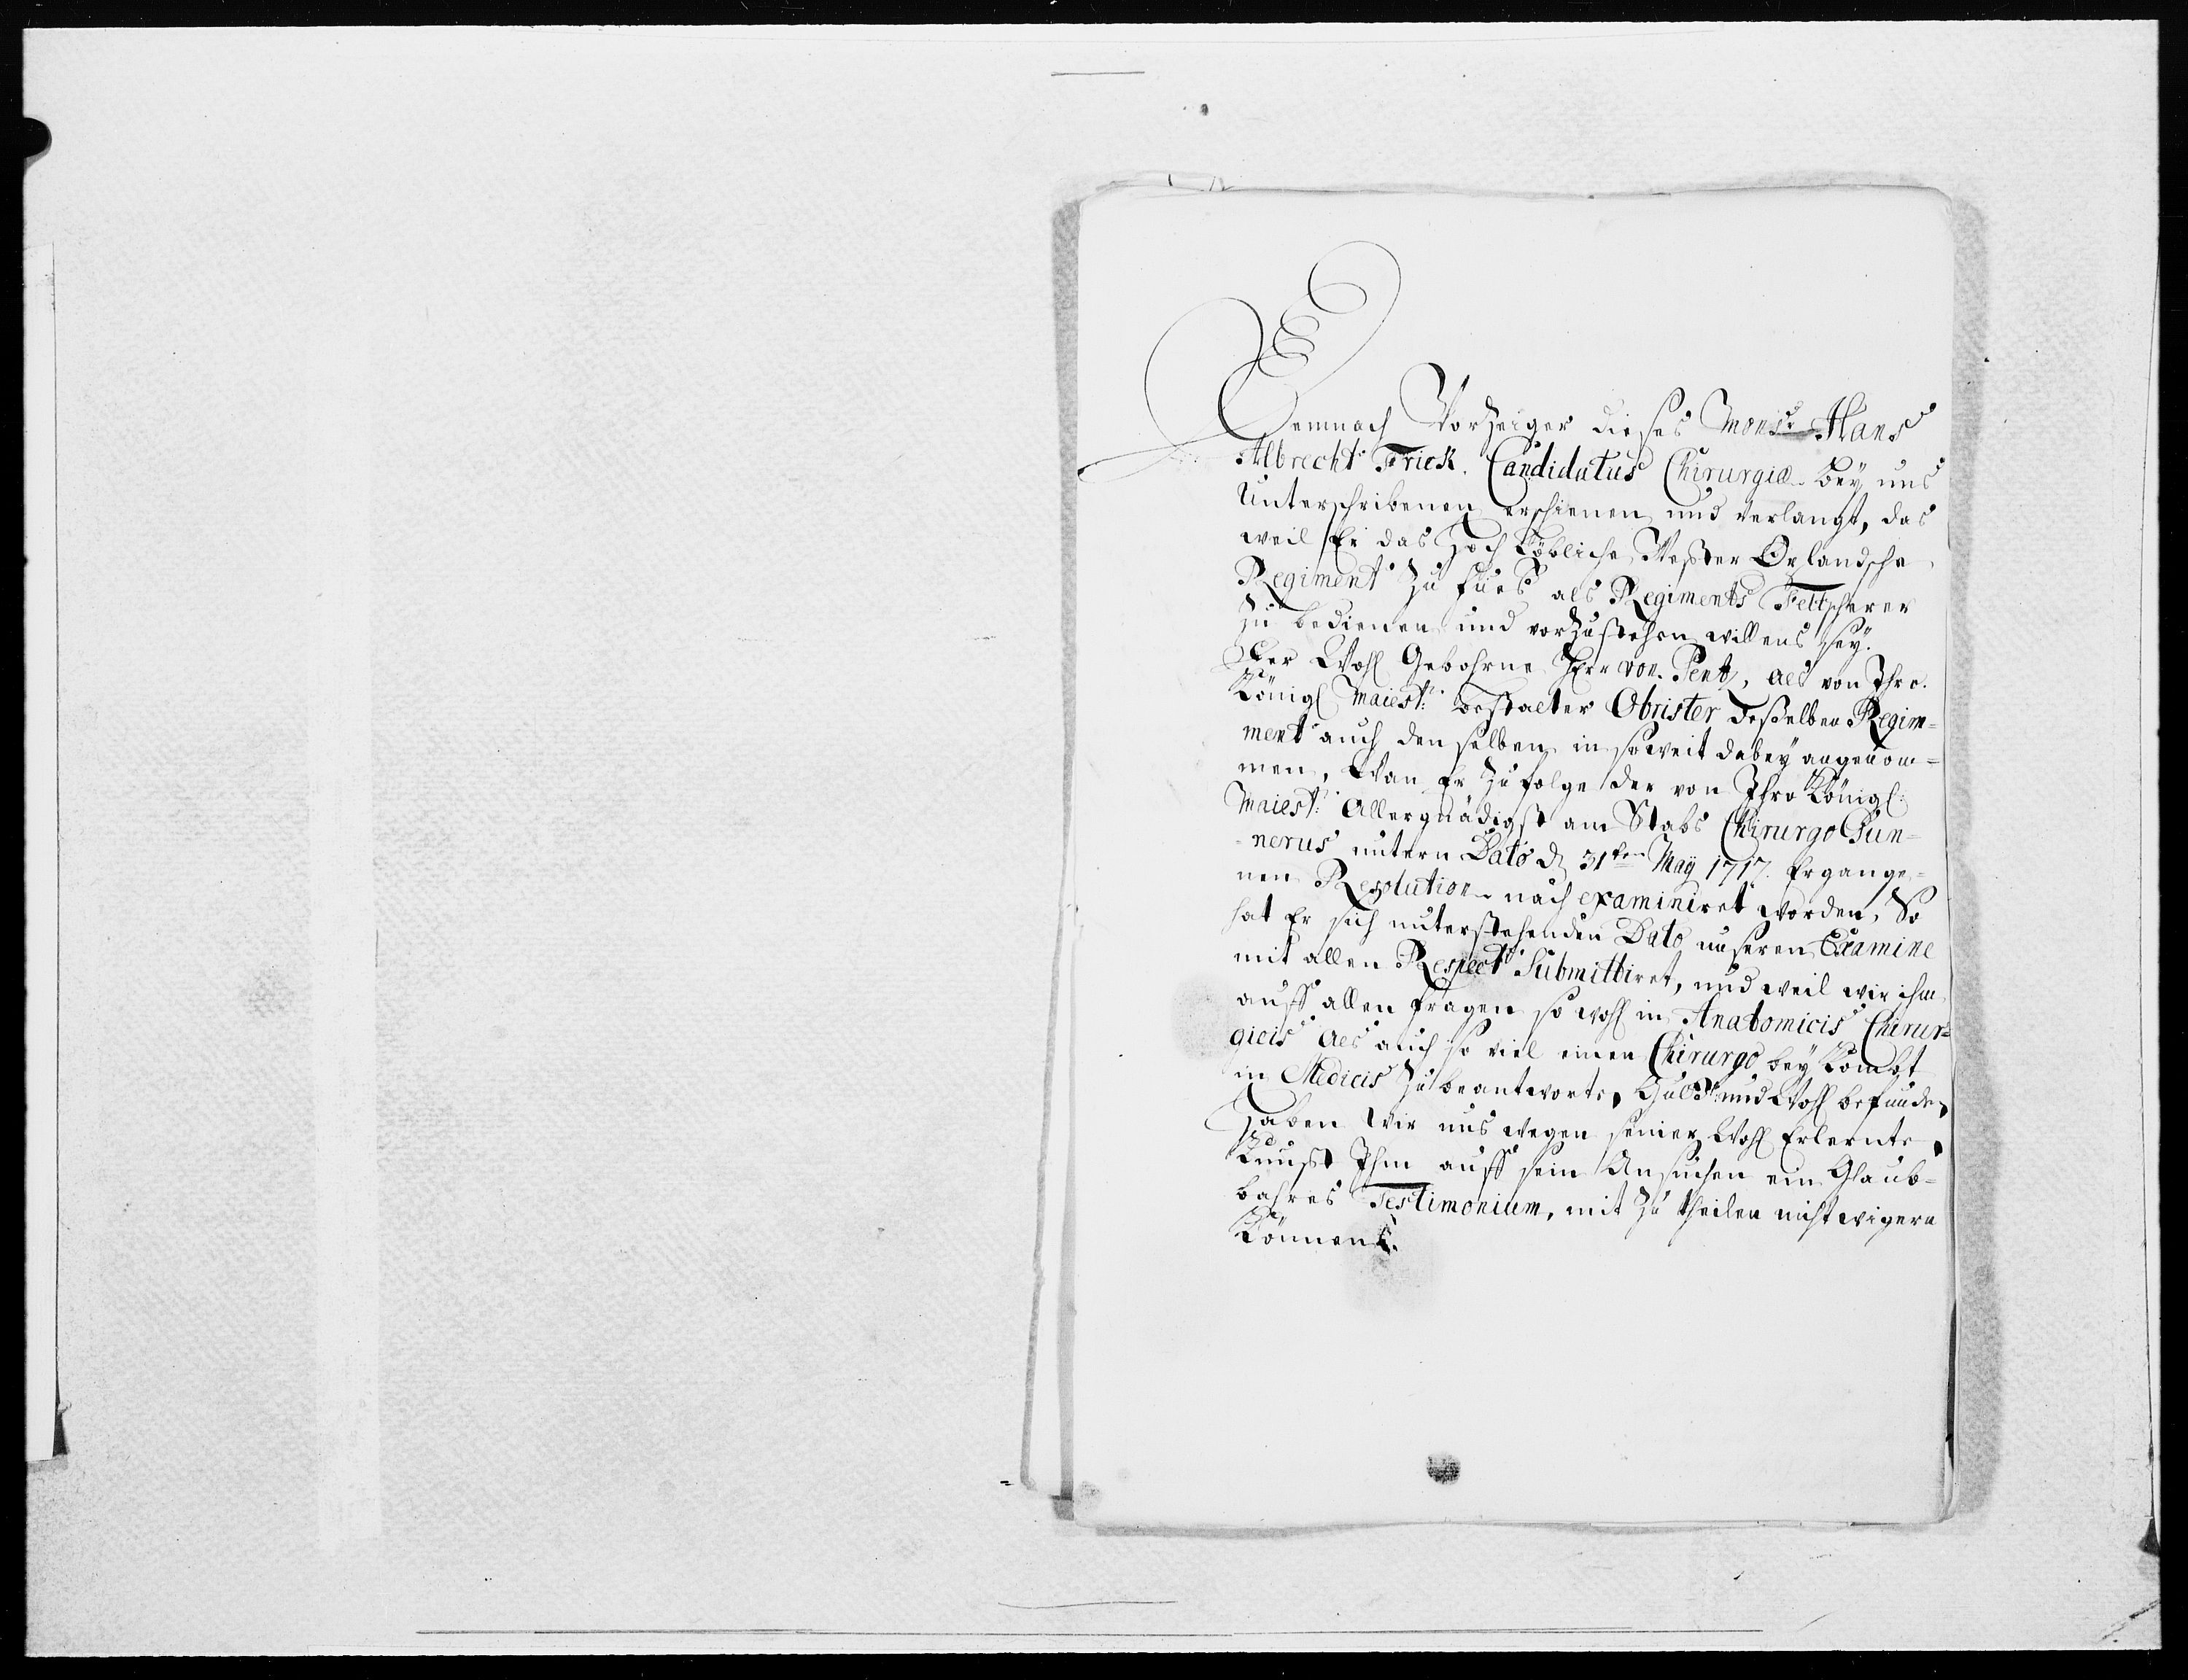 Demnach Vorzeiger dieses Monsr Hans
Albrecht Frick. Candidatus Chirurgiæ bey uns
Unterschribenen erschienen und verlangt, das
weil Er das Hoch Löbliche Wester Oplandsche
Regiment zu fues als Regiments Feltscherer
zu bedienen und vorzustehen willens sey.
Der Wohl Gebohrne Herr von Pentz, als von Ihro.
Königl Maiest: bestalter Obrister desselben Regim=
ment auch denselben in soweit dabey angenom=
men, Wan Er zufolge der von Ihro Königl:
Maiest: Allergnädigst am Stabs Chirurgo Gun=
nerus untern Dato d 31ten May 1717. Ergange=
nen Resolution nach examiniret worden, So
hat Er sich unterstehenden Dato unseren Examine
mit allen Respect Submittiret, und weil wir ihm
auff allen fragen so wohl in Anatomicis Chirur=
gicis als auch so viel einen Chirurgo bey Kombt
in Medicis zu beantworten, und Wohl befunden
Haben Wir uns wegen seiner Wohl Erlernte
Kunst Ihm auff sein Ansuchen ein Glaub=
bahres Testimonium, mit zu theilen nicht wigern
Können.